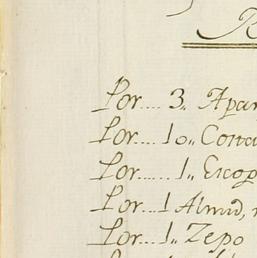 Por.... 3,, Apar
Por.... 10,, Corta
Por...... 1,, Escop
Por... 1 Almud,
Por.... 1,, Zepo
Por...